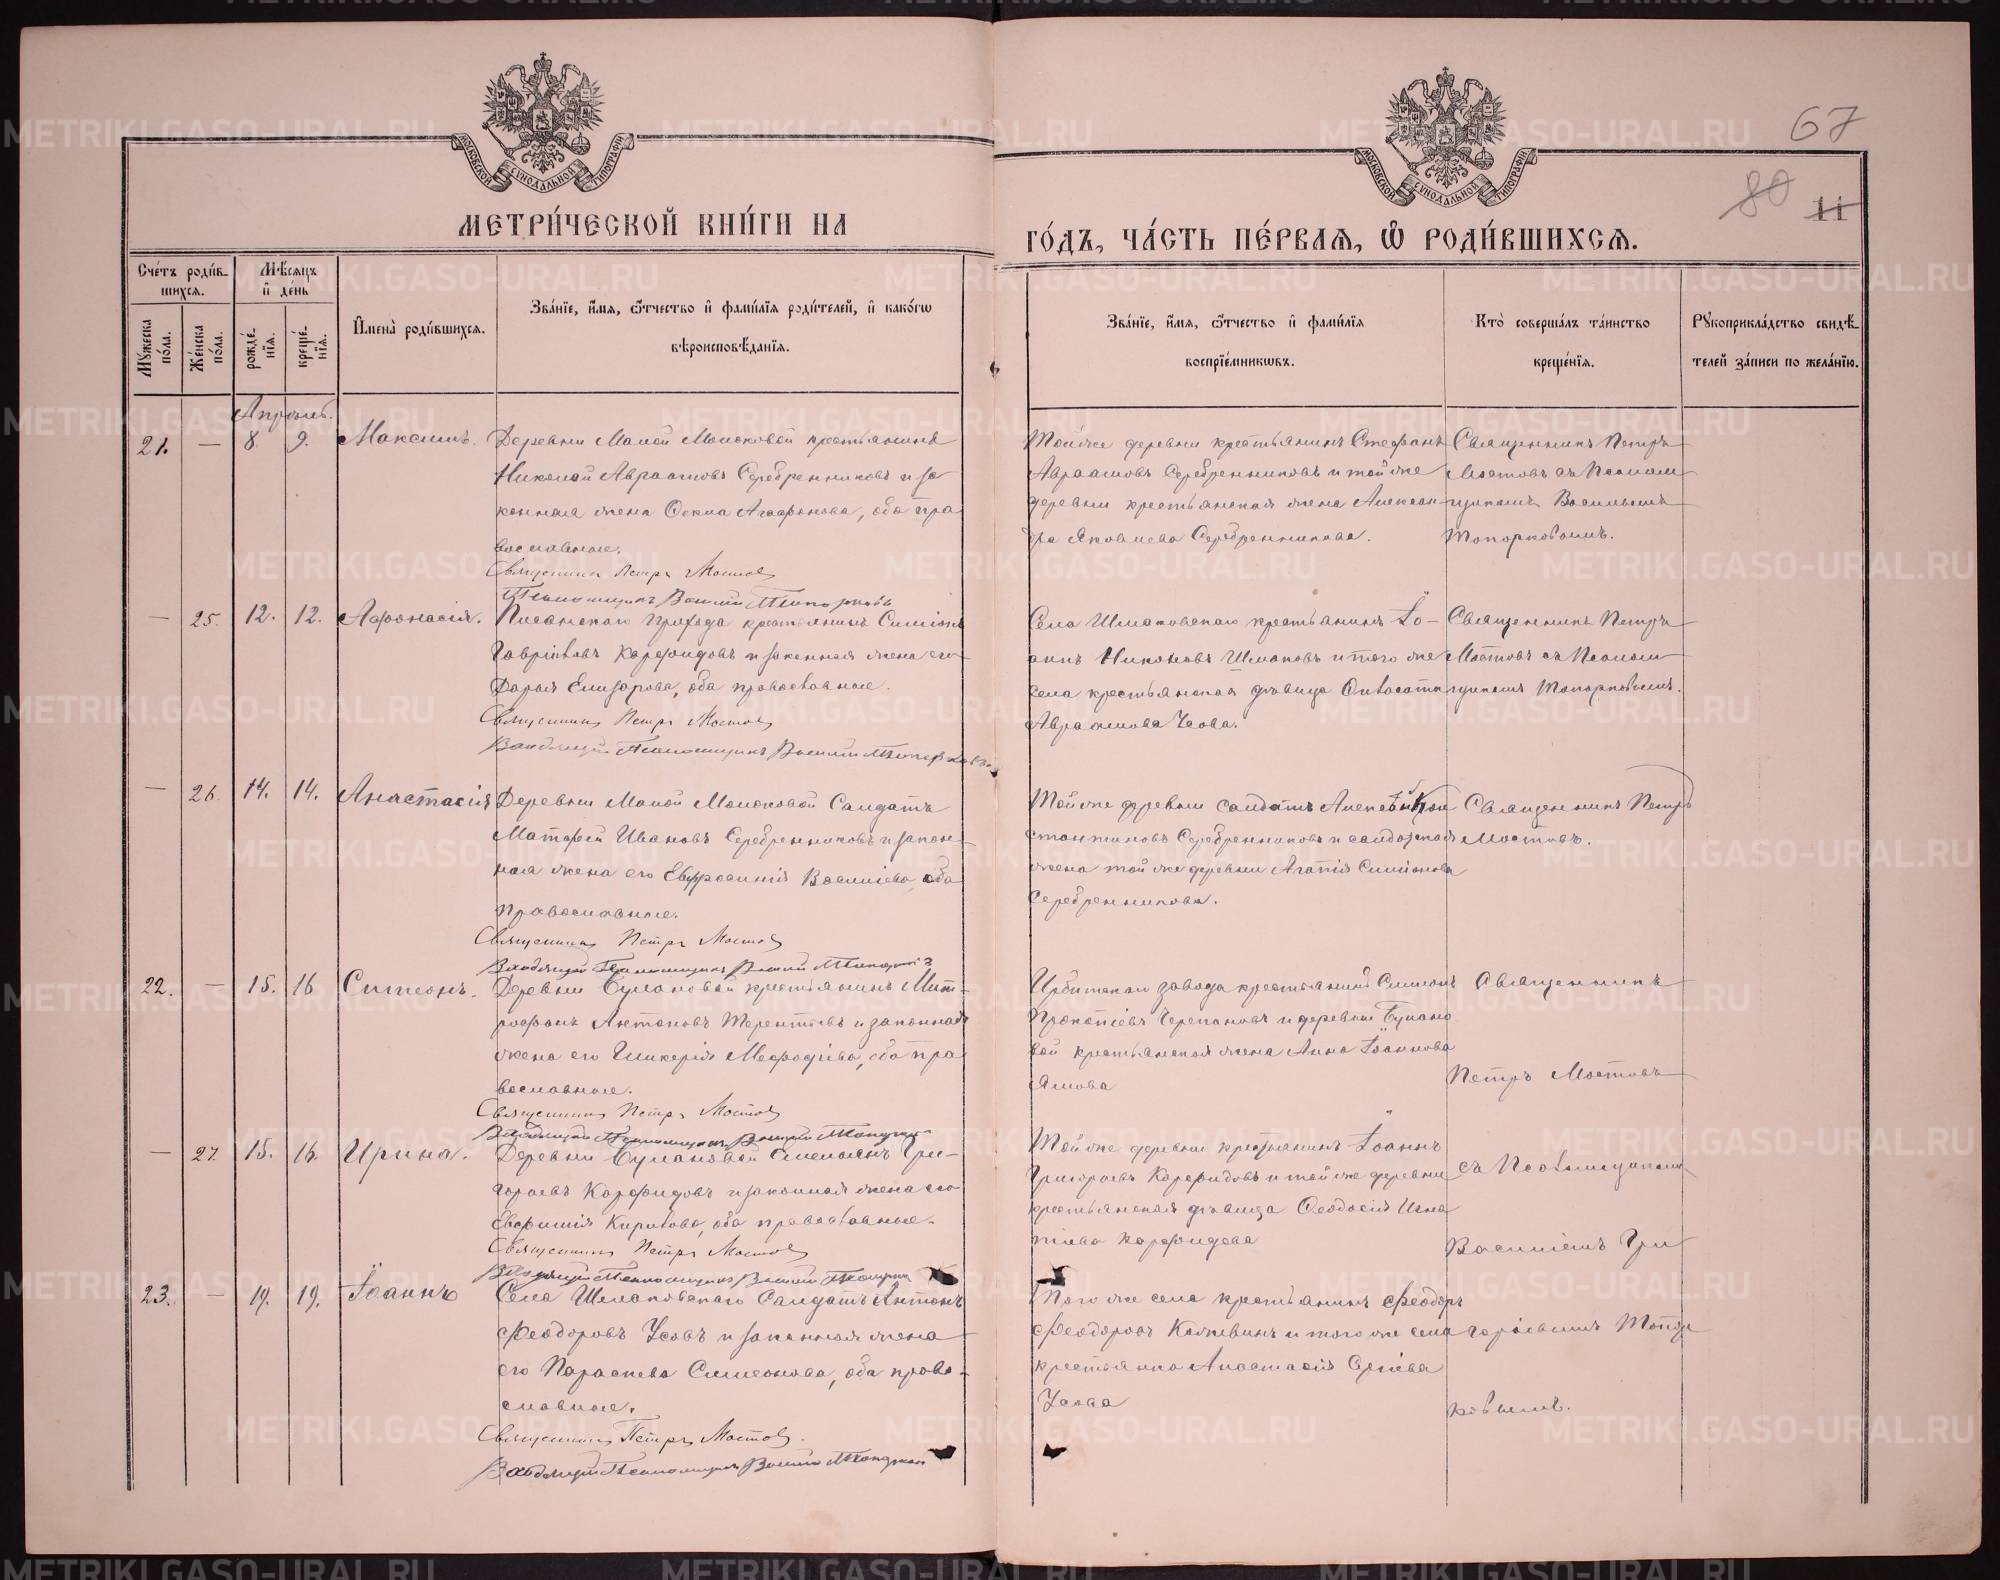 67
80
11
МОСКОВСКОЙ СѴНОДАЛЬНОЙ ТИПОГРАФІИ
МОСКОВСКОЙ СѴНОДАЛЬНОЙ ТИПОГРАФІИ
МЕТРИ́ЧЕСКОЙ КНИ́ГИ НА
ГО́ДЪ, ЧА́СТЬ ПЕ́РВАЯ, Ѿ РОДИ́ВШИХСЯ.
Сче́тъ роди́в-
шихся.
Мѣ́сяцъ
и де́нь
Мꙋ́жеска по́ла.
Же́нска по́ла.
рожде́-
нія.
креще́-
нія.
Имена̀ роди́вшихся.
Зва́ніе, и́мя, ѻ́тчество и фами́лія роди́телей, и како́гѡ
вѣроисповѣ́данія.
Зва́ніе, и́мя, ѻ́тчество и фами́лія
воспріе́мникѡвъ.
Кто̀ соверша́лъ та́инство
креще́нія.
Рꙋкоприкла́дство свидѣ́-
телей за́писи по жела́нію.
Апрѣль.
21. — 8 9. Максимъ.
Деревни Малой Молоковой крестьянинъ
Николай Авраамовъ Серебренниковъ и за
конная жена Фекла Агафонова, оба пра
вославные.
Священникъ Петръ Мостовъ
Псаломщикъ Василій Топорковъ
Тойже деревни крестьянинъ Стефанъ
Авраамовъ Серебренниковъ и той же
деревни крестьянская жена Алексан-
дра Яковлева Серебренникова.
Священникъ Петръ
Мостовъ съ Псалом
щикомъ Васильемъ
Топорковымъ.
— 25. 12. 12. Афонасія.
прихода крестьянинъ Симіонъ
Гавріиловъ Корфидовъ и законная жена его
Дарья Елизарова, оба православные.
Священникъ Петръ Мостовъ
Псаломщикъ Василій Топорковъ
Села Шмаковскаго крестьянинъ Іо-
аннъ Никоновъ Шмаковъ и того же
села крестьянская дѣвица
Авраамова Усова.
Священникъ Петръ
Мостовъ съ Псалом
щикомъ Топорковымъ.
— 26. 14. 14. Анастасія
Деревни Малой Молоковой Солдатъ
Матфей Ивановъ Серебренниковъ и закон-
ная жена его Евфросинія Василіева, оба
православные.
Священникъ Петръ Мостовъ
Псаломщикъ Василій
Той же деревни солдатъ Алексѣй Кон
стантиновъ Серебренниковъ и солдатская
жена той же деревни Агапія Симіонова
Серебренникова.
Священникъ Петръ
Мостовъ.
22. — 15. 16. Симеонъ.
Деревни Булановой крестьянинъ Мит-
рофанъ Антоновъ Терентьевъ и законная
жена его Гликерія Мефодіева, оба пра
вославные.
Священникъ Петръ Мостовъ
Псаломщикъ Василій
Ирбитскаго завода крестьянинъ Симеонъ
Прокопіевъ Черепановъ и деревни Булано
вой крестьянская жена Анна Іоаннова
Священникъ
Петръ Мостовъ
— 27. 15. 16. Ирина.
Деревни Булановой Гри-
горьевъ Корфидовъ и законная жена его
Евфимія Кирилова, оба православные.
Священникъ Петръ Мостовъ
Псаломщикъ Василій
Той же деревни крестьянинъ Іоаннъ
Григорьевъ Корфидовъ и той же деревни
крестьянская дѣвица Феодосія Игна
тіева Корфидова
съ Псаломщикомъ
Василіемъ Гри
23. — 19. 19. Іоаннъ
Села Шмаковскаго Солдатъ Антонъ
Феодоровъ Усовъ и законная жена
его Параскева Симеонова, оба право-
славные.
Священникъ Петръ Мостовъ.
Псаломщикъ Василій
Того же села крестьянинъ Феодоръ
Феодоровъ и того же села
крестьянка Анастасія Сергіева
Усова
горіевымъ Топор
ковымъ.
METRIKI.GASO-URAL.RU